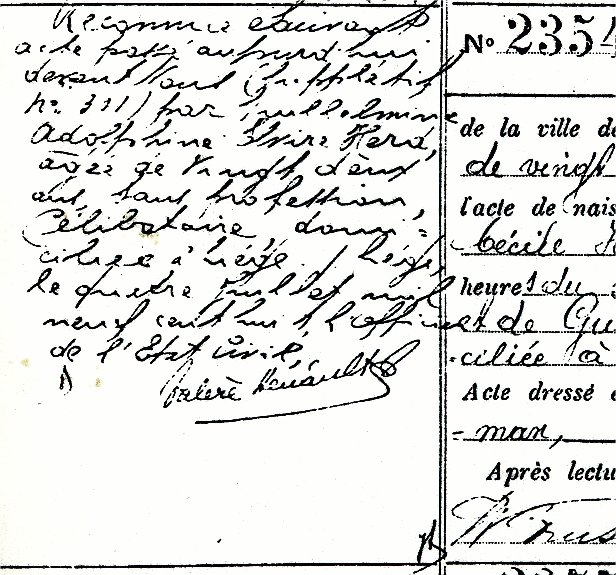 Reconnue suivant
acte passé aujourd'hui
devant Nous (supplétif
n° 311) par Guillelmine
Adolphine Elvire Herd,
agée de vingt deux
ans, sans profession,
célibataire, domi=
ciliée à Liége. / Liége,
le quatre juillet mil
neuf cent huit, L'officier
de l'Etat civil,
Valère Hénault
N° 2354
de la ville de
de vingt
l'acte de nais
Cécile
heures du
et de Gu
ciliée à
Acte dressé
- man,
Après lectu